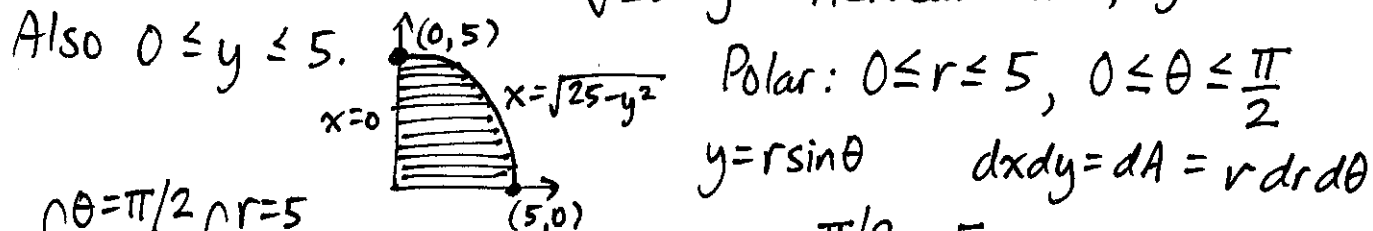 Also 0 ≤ y ≤ 5.
(0,5)
x=0
x=√25-y²
(5,0)
Polar: 0≤r≤5, 0≤θ≤π/2
y=rsinθ dxdy=dA=rdrdθ
θ=π/2 r=5
π/2 5